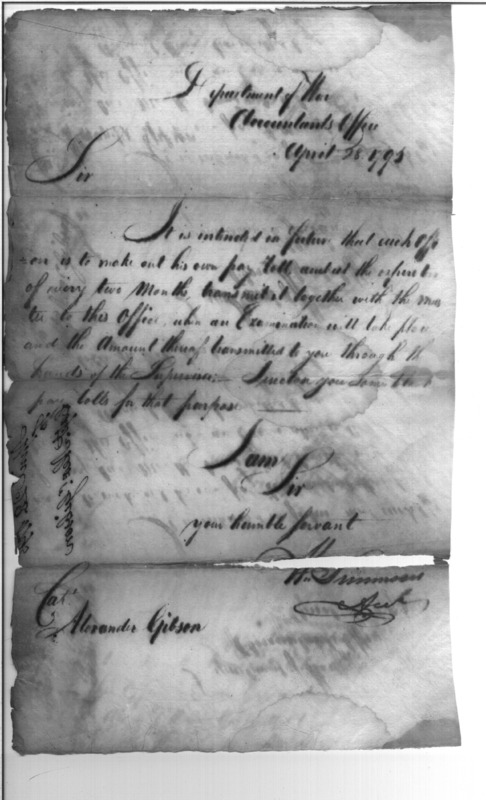 Department of War
Accountants Office
April 28 1795
Sir
It is intended in future that each Offi
cer is to make out his own pay Roll, and at the expiration
of every two Months, transmit it together with the mus
ter to this Office, when an Examination will take place
and the Amount thereof transmitted to you through the
hands of the Supervisor. I enclose you some blank
pay rolls for that purpose
I am
Sir
your humble servant
Wm Simmons
Acct
Capt.
Alexander Gibson